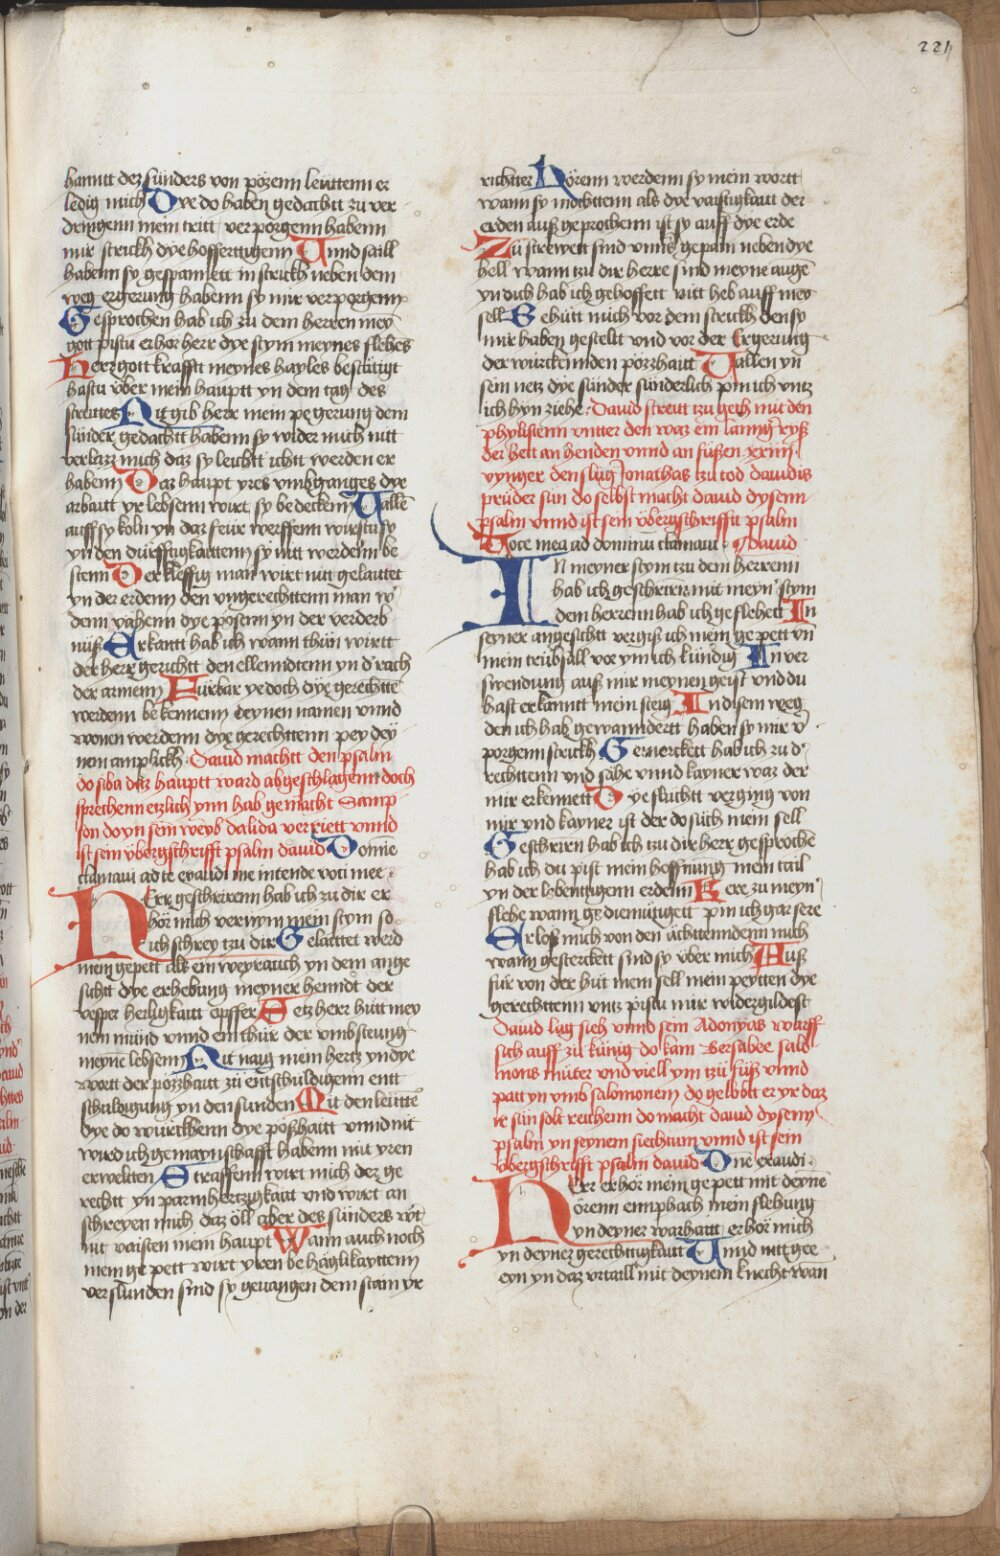 221
hanntt dez sünders von pözenn leüttenn er
ledig mich Dye do haben gedachtt zu ver
dringenn mein tritt verporgenn habenn
mir strickh dye hofferttigenn Unnd saill
habenn sy gespannett in strickh neben dem
weg ergerung habenn sy mir verporgenn
Gesprochen hab ich zu dem herren mey
gott pistu erhör herr dye stym meynes flehes
Herr gott krafftt meynes hayles beschätigt
hastu vber mein hauptt yn dem tag des
streittes Nit gib herre mein pegerung dem
sünder gedachtt habenn sy wider mich nitt
verlazz mich daz sy leichtt ichtt werden er
habenn Daz haupt yres vmbganges dye
arbaitt yr lebsenn wirt sy bedeckenn Vallē
auff sy koln yn daz feür werffenn wirstu sy
yn den dürfftigkaittenn sy nitt werdenn be
stenn Der kleffig man wirt nitt gelaittet
yn der erdenn den vngerechttenn man w
denn vahenn dye pösenn yn der verderb
nüß Erkantt hab ich wann thün wirtt
der herr gerichtt den ellenndtenn yn d' rach
der armenn Fürbar yedoch dye gerechttē
werdenn bekennenn deynen namen vnnd
wonen werdenn dye gerechttenn pey dey
nem anplickh David machtt den psalm
do siba daz hauptt ward abgeschlagenn doch
sprechenn etzlich ynn hab gemacht Samp
son do yn sein weyb dalida verriett vnnd
ist sein vbergschrifft psalm david Domie
clamaui ad te exaudi me intende voci mee
HErr geschrirenn hab ich zu dir er
hör mich vernym mein stym so
ich schrey tzu dir Gelaittet werd
mein gepett als ein weyrauch yn dem ange
sichtt dye erhebung meyner henndt der
vesper heiligkaitt opffer Setz herr hütt mey
nem münd vnnd ein thür der vmbsteung
meynē lebsenn Nit naig mein hertz yn dye
wort der pozzhaitt zü entschuldigenn entt
schuldigung yn den sunden Mit den leüttē
dye do würckhenn dye poßhaitt vnnd mit
wird ich gemaynschafft habenn mit yren
erwelten Straffenn wirt mich dez ge
rechtt yn parmhertzigkaitt vnd wirt an
schreyen mich daz öll aber des sünders wirt
nit vaisten mein haupt Wann auch noch
mein gepett wirt yn ben behäglikayttenn
verslunden sind sy gevangen dem stain yr
richtter Hörenn werdenn sy mein wortt
wann sy mochttenn als dye vaistigkaitt der
erden auß geprochenn ist sy auff dye erde
Zü strewett sind vnns gepain neben dye
hell wann tzu dir herre sind meyne augē
yn dich hab ich gehoffett nitt heb auff mey
sell Behütt mich vor dem strickh den sy
mir haben gestelt vnd vor der Ergerung
der würckennden pozzhaitt Vallen yn
sein netz dye sünder sünderlich pin ich vntz
ich hyn ziehe David streitt tzu geth mit den
phylistenn vntter den waz ein lanng ryß
der hett an henden vnnd an füßen xxiiii
vynger den slüg Jonathas tzu tod davidis
prüder sün do selbst macht david dysenn
psalm vnnd ist sein vbergschrifft psalm
Uoce mea ad dominū clamaui David
IN meyner stym tzu dem herrenn
hab ich geschrirn mit meyn' stym
dem herrenn hab ich geflehett In
seyner angesichtt vergiß ich mein gepett vn̄
mein trübsall vor ym ich kündig In ver
swendung auß mir meynen geist vnd du
hast erkanntt mein steig In disem weg
den ich hab gewanndertt haben sy mir v
porgenn strickh Gemerckett hab ich zu d'
rechttenn vnd sahe vnnd kayner waz der
mir erkennett Dye fluchtt verging von
mir vnd kayner ist der do süch mein sell
Geschrirn hab ich tzu dir herr gesprochē
hab ich du pist mein hoffnung mein tail
yn der lebenntigenn erdenn Kere zu meyn'
flehe wann gediemütigett pin ich gar sere
Erloß mich von den achttenndenn mich
wann gesterckett sind sy vber mich Auß
für von der hüt mein sell mein peytten dye
gerechttenn vntz pistu mir widergildest
David lag siech vnnd sein Adonyas warff
sich auff zu künig do kam Bersabee salo
mons müter vnd viell ym tzü füß vnnd
patt yn vmb salomonem do gelobtt er yr daz
ir sün solt reichenn do macht david dysenn
psalm yn seynem siechtum vnnd ist sein
vbergschrifft psalm david Dn̄e exaudi
HErr erhör mein gepett mit deynē
hörenn empphach mein flehung
yn deyner warhaitt erhör mich
yn deyner gerechttigkaitt Unnd nitt gee
eyn yn daz vrtaill mit deynem knecht wan